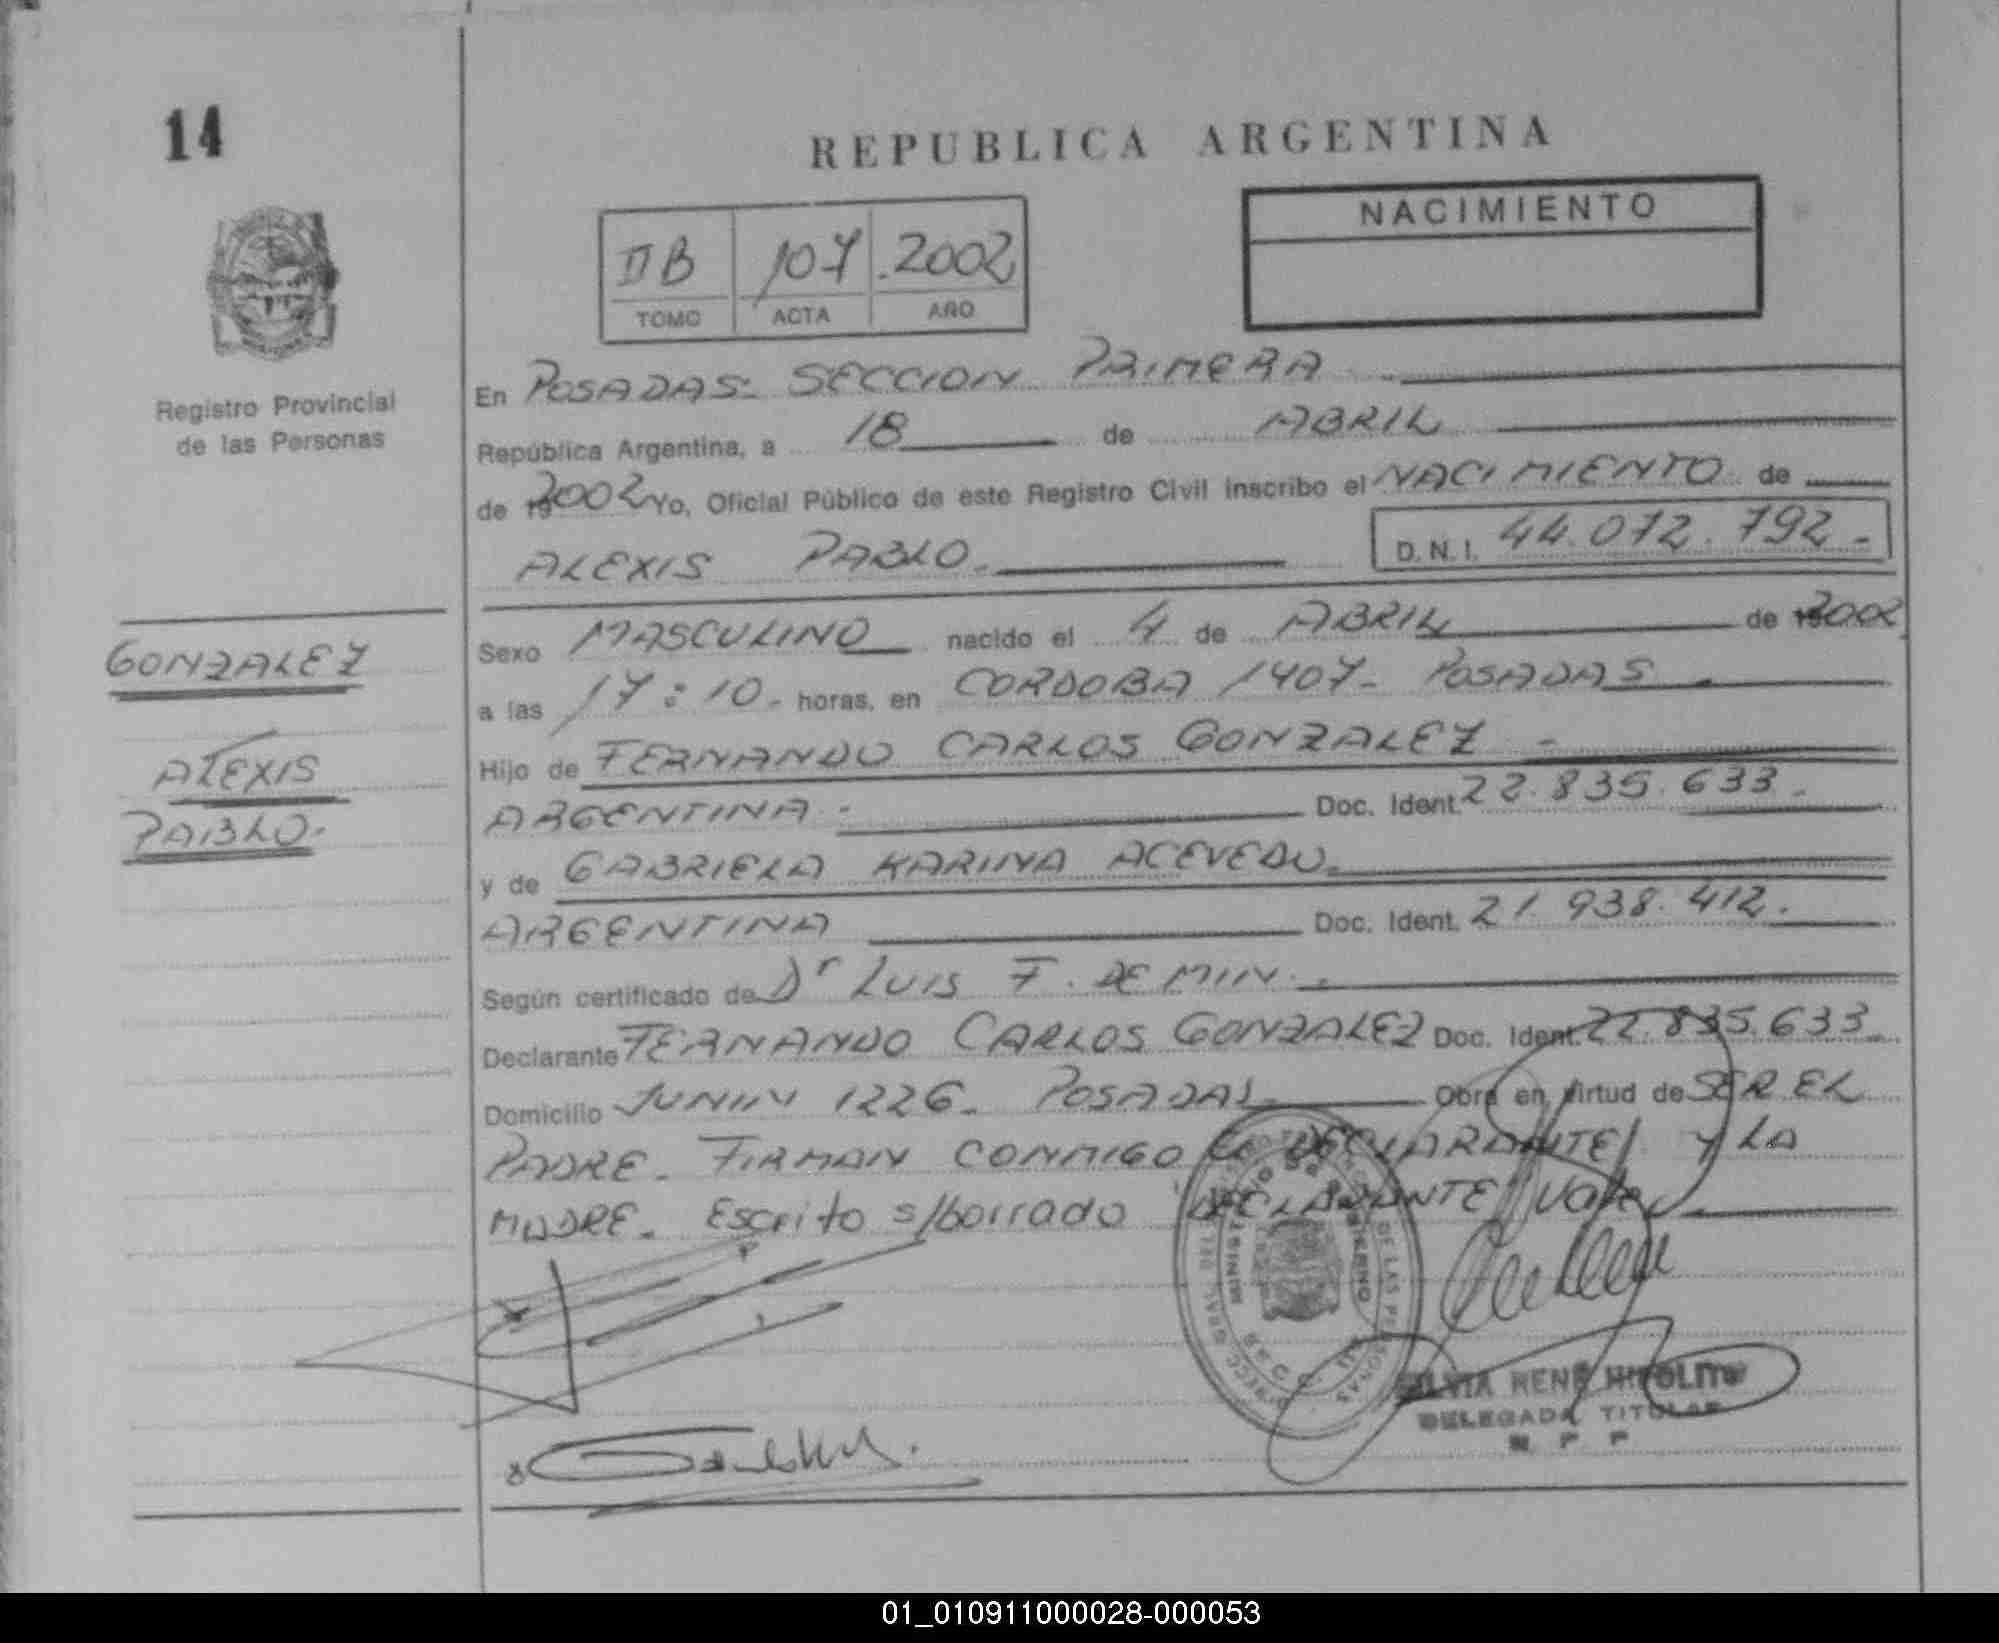 14
REPUBLICA ARGENTINA
NACIMIENTO
IIB 107 2002
TOMO ACTA AÑO
Registro Provincial
de las Personas
En POSADAS- SECCION PRIMERA
República Argentina, a 18 de ABRIL
de 2002 Yo, Oficial Público de este Registro Civil inscribo el NACIMIENTO de
ALEXIS PABLO. D.N.I. 44.072.792.-
GONZALEZ
ALEXIS
PABLO.
Sexo MASCULINO nacido el 4 de ABRIL de 2002
a las 17:10- horas, en CORDOBA 1407- POSADAS
Hijo de FERNANDO CARLOS GONZALEZ -
ARGENTINA - Doc. Ident. 22.835.633.
y de GABRIELA KARINA ACEVEDO.
ARGENTINA Doc. Ident. 21.938.412.
Según certificado de Dr LUIS F. DEMIN.
Declarante FERNANDO CARLOS GONZALEZ Doc. Ident. 22.835.633
Domicilio JUNIN 1226- POSADAS Obra en virtud de SER EL
PADRE- FIRMAN CONMIGO DECLARANTE Y LA
MADRE- Escrito s/borrado DECLARANTE Vale
DE LAS PERSONAS
SILVIA RENE HIPOLITO
DELEGADA TITULAR
R P P
01_010911000028-000053